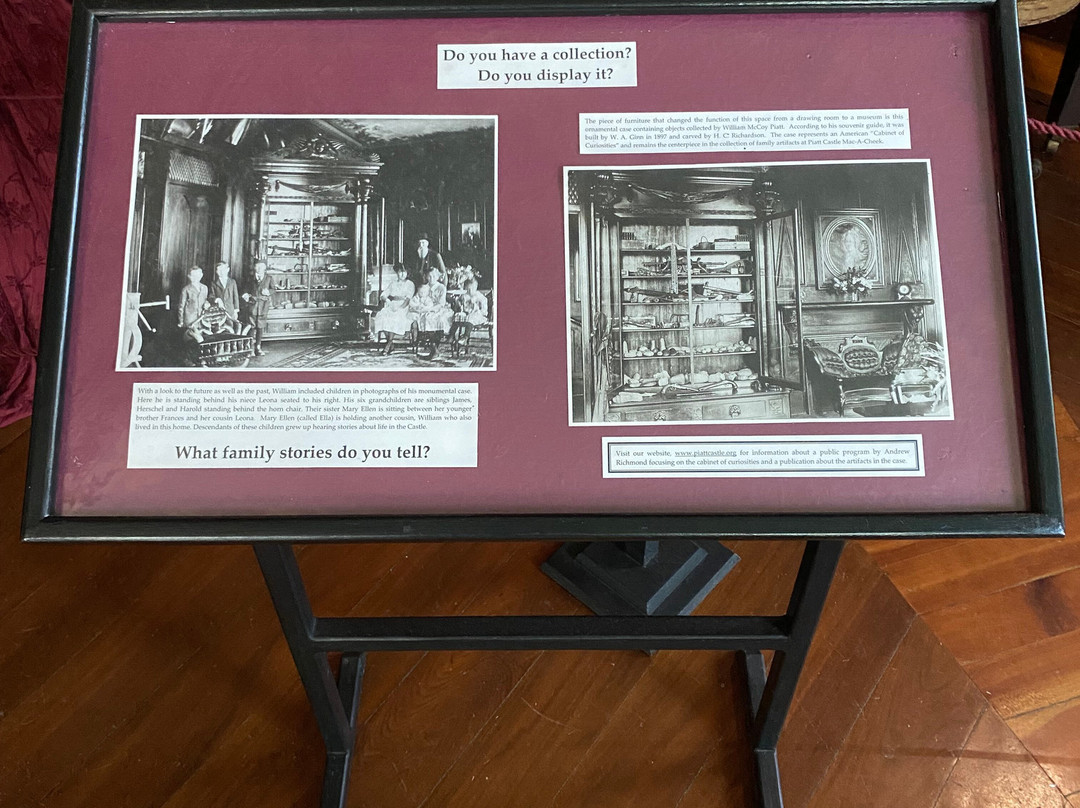 Do you have a collection?
Do you display it?
The piece of furniture that changed the function of this space from a drawing room to a museum is this
ornamental case containing objects collected by William McCoy Piatt. According to his souvenir guide, it was
built by W. A. Ginn in 1897 and carved by H. C. Richardson. The case represents an American "Cabinet of
Curiosities" and remains the centerpiece in the collection of family artifacts at Piatt Castle Mac-A-Cheek.
With a look to the future as well as the past, William included children in photographs of his monumental case.
Here he is standing behind his niece Leona seated to his right. His six grandchildren are siblings James,
Herschel and Harold standing behind the horn chair. Their sister Mary Ellen is sitting between her younger
brother Frances and her cousin Leona. Mary Ellen (called Ella) is holding another cousin, William who also
lived in this home. Descendants of these children grew up hearing stories about life in the Castle.
What family stories do you tell?
Visit our website, www.piattcastle.org for information about a public program by Andrew
Richmond focusing on the cabinet of curiosities and a publication about the artifacts in the case.